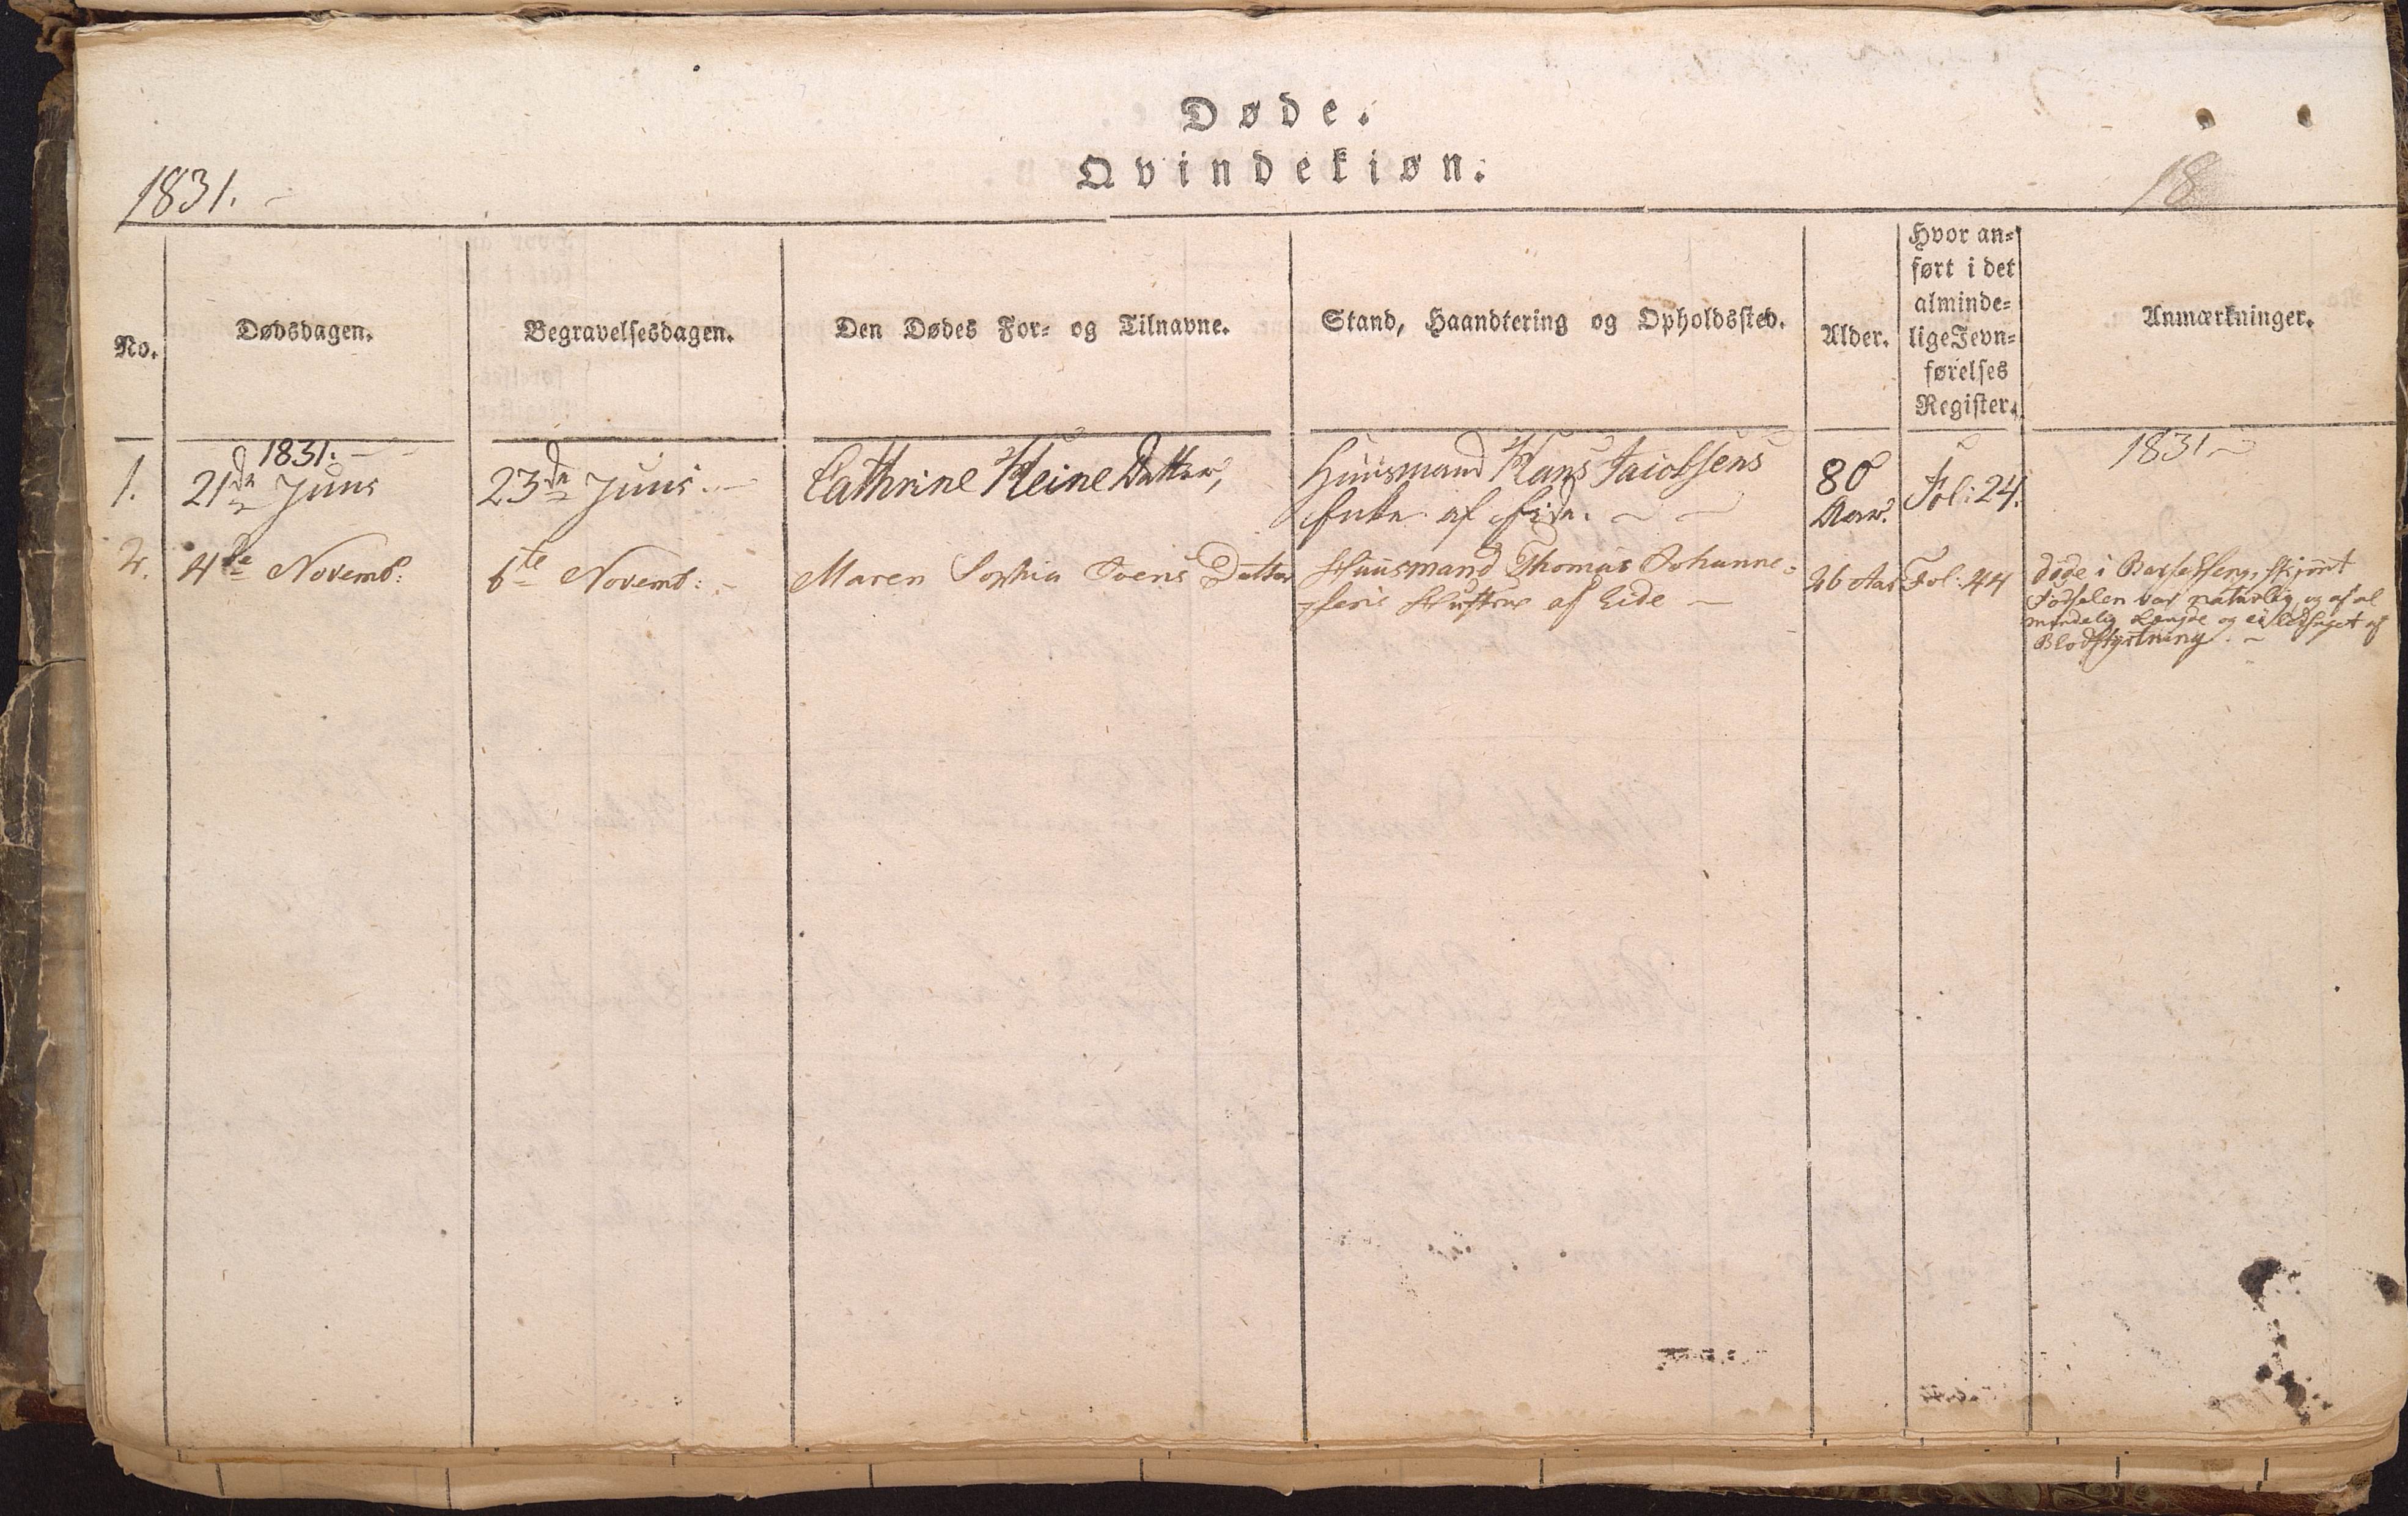 Døde.
Qvindekiøn.
1831.
18
No.
Dødsdagen.
Begravelsesdagen.
Den Dødes For- og Tilnavne.
Stand, Haandtering og Opholdssted.
Alder.
Hvor an-
ført i det
alminde-
lige Jevn-
førelses
Register.
Anmærkninger.
1831.
1831
1. 21de Juni 23de Juni Cathrine Heine Datter, Huusmand Hans Jacobsens 80 Fol: 24.
Enke af Eide. Aar.
2. 4de Novemb: 6te Novemb: Maren Sophia Ovens Datter Huusmand Thomas Johanne- 26 Aar Fol: 44 døde i Barselseng, skjønt
sens Hustrue af Eide Fødselen var naturlig og af al
mindelig Længde og ei ledsaget af
Blodstyrtning.